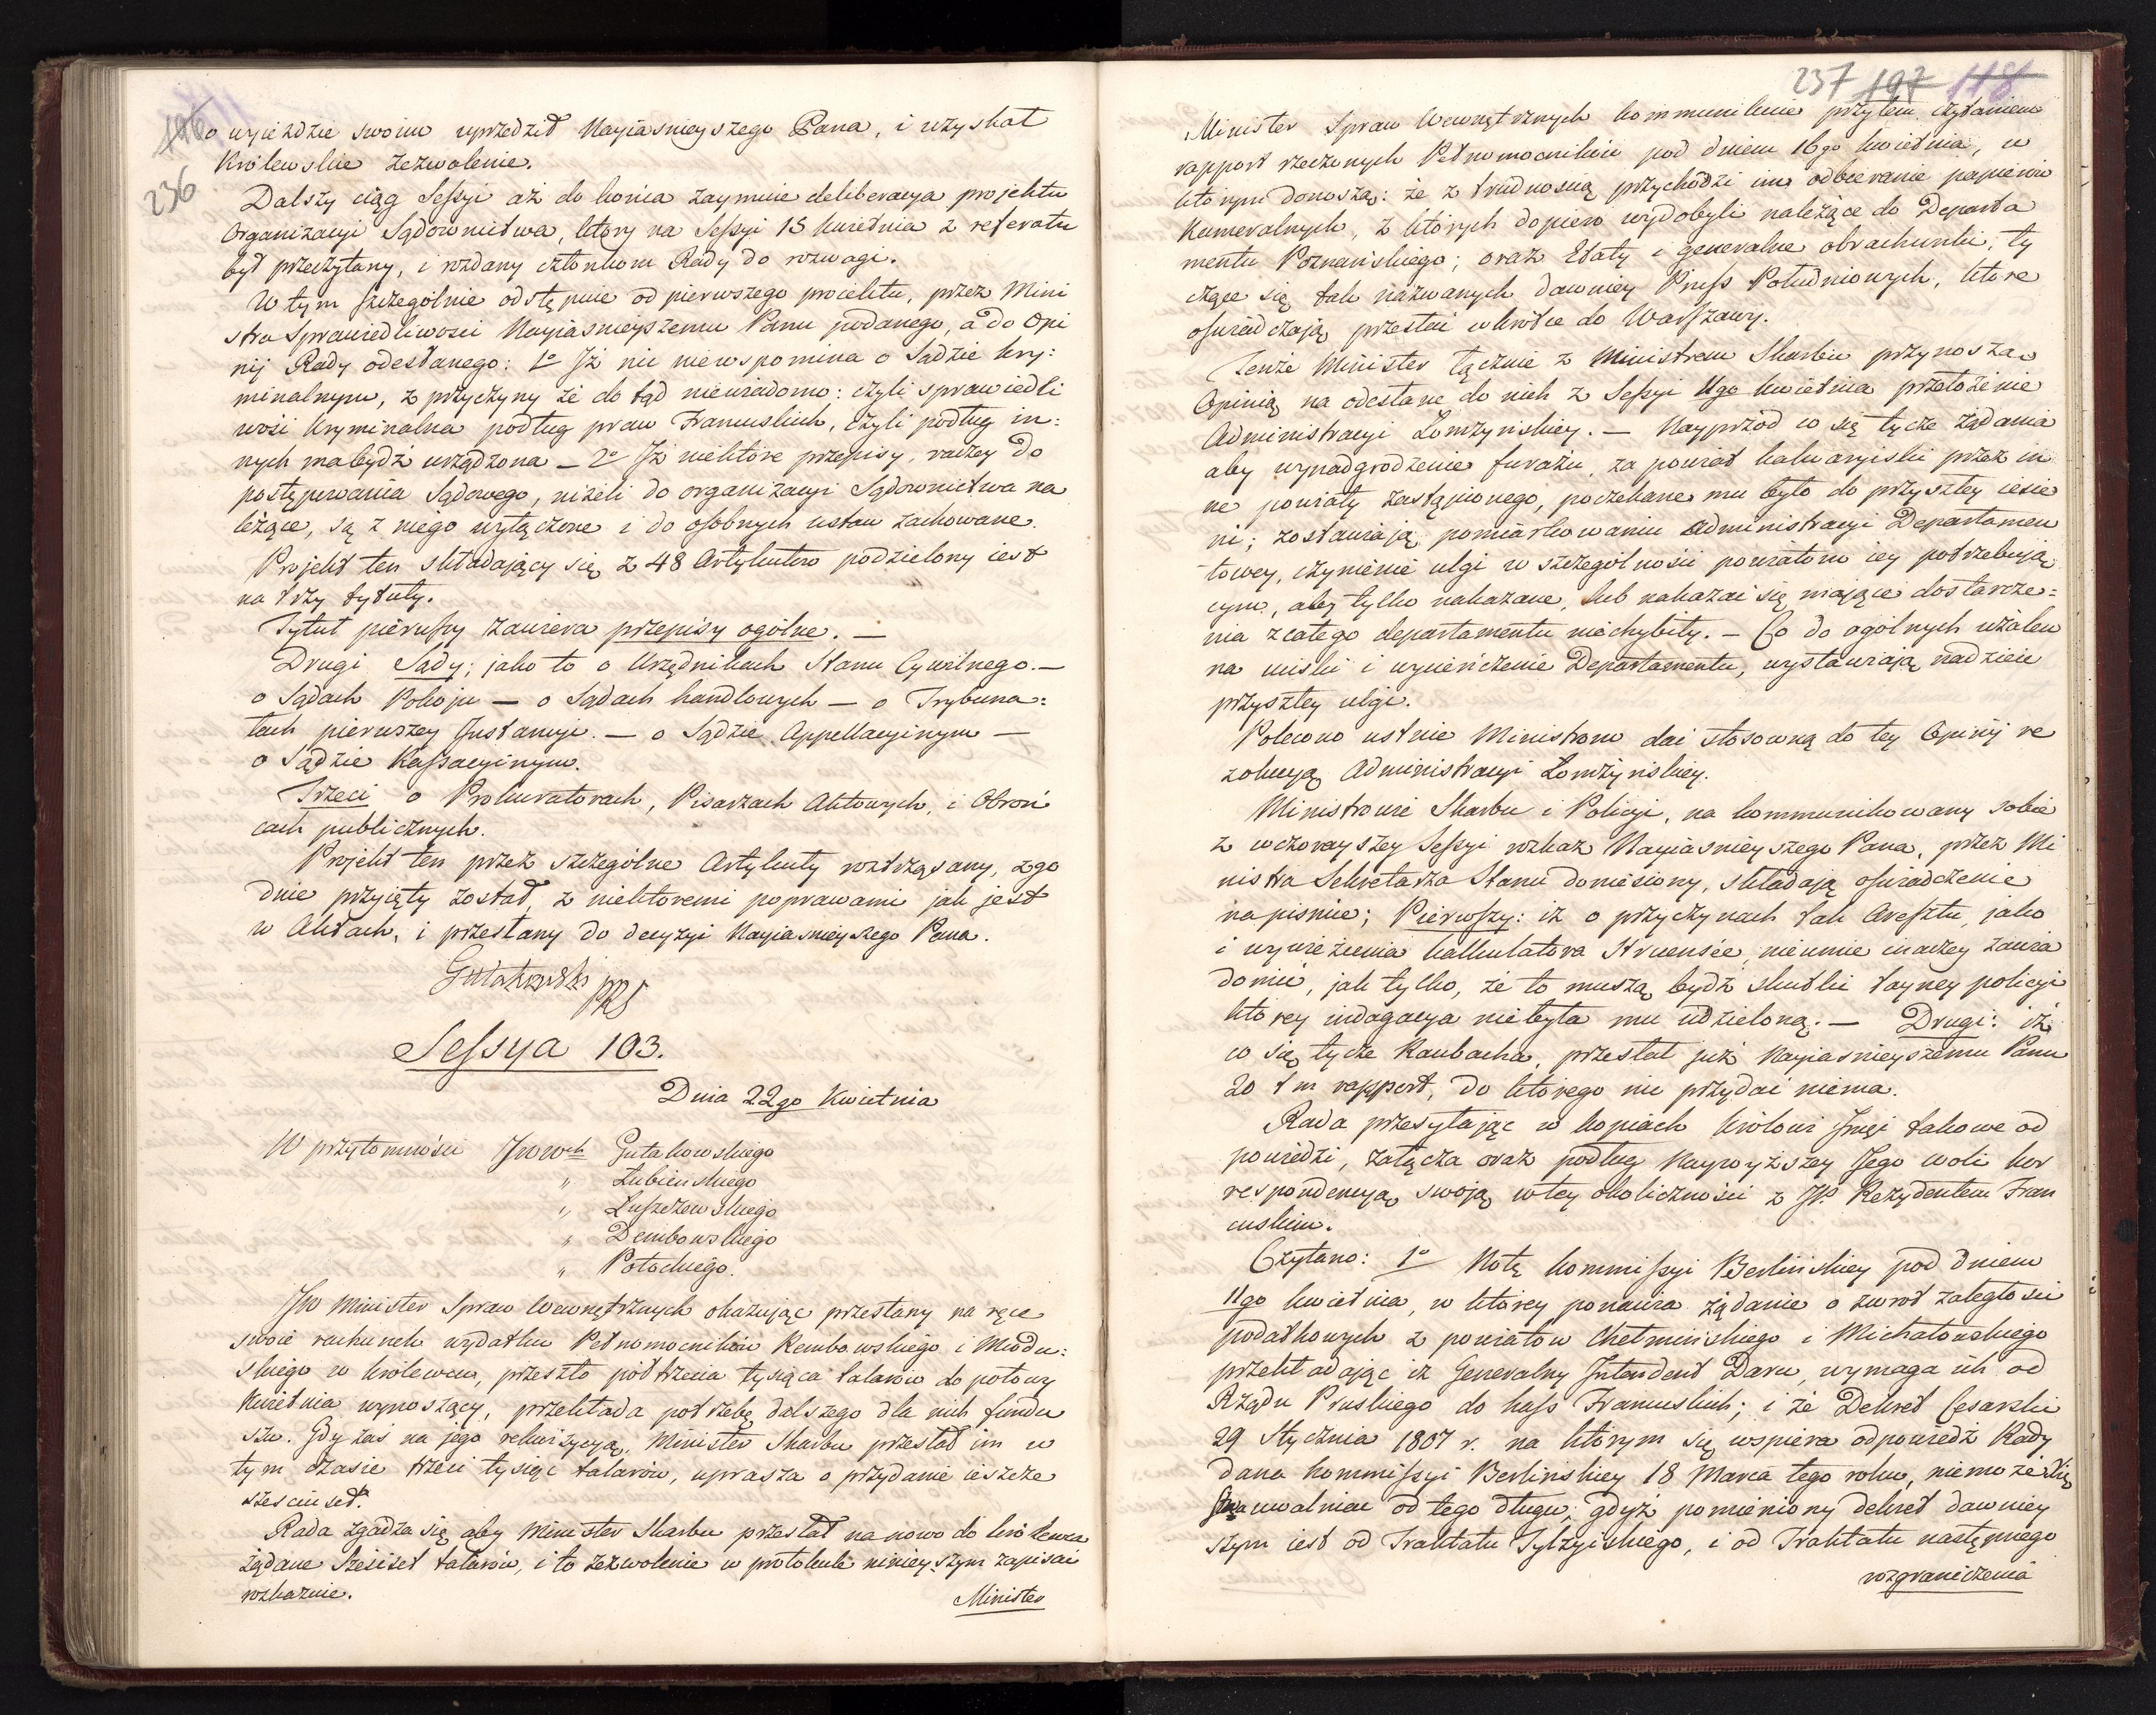 236
o wyieździe swoim uprzedził Nayiaśnieyszego Pana, i uzyskał
Królewskie zezwolenie.
Dalszy ciąg Sessyi aż do końca zaymuie deliberacya projektu
Organizacyi Sądownictwa, który na Sessyi 15 kwietnia z referatu
był przeczytany, i rozdany członkom Rady do rozwagi.
W tym szczególnie odstępuie od pierwszego proiektu, przez Mini
stra Sprawiedliwości Nayiaśnieyszemu Panu podanego, a do Opi
nij Rady odesłanego: 1o Iż nic niewspomina o Sądzie kry:
minalnym, z przyczyny że do tąd niewiadomo: czyli sprawiedli
wość kryminalna podług praw Francuskich, czyli podług in:
nych mabydź urządzona – 2o Iż niektóre przepisy, raczey do
postępowania Sądowego, niżeli do organizacyi Sądownictwa na
leżące, są z niego wyłączone i do osobnych ustaw zachowane.
Projekt ten składający się z 48 Artykułow podzielony iest
na trzy tytuły.
Tytuł pierwszy zawiera przepisy ogólne. –
Drugi Sądy; jako to o Urzędnikach Stanu Cywilnego. –
o Sądach Pokoju – o Sądach handlowych – o Trybuna:
łach pierwszey Instancyi. – o Sądzie Appellacyinym –
o Sądzie Kassacyinym.
Trzeci o Prokuratorach, Pisarzach Aktowych, i Obroń
cach publicznych.
Projekt ten przez szczególne Artykuły roztrząsany, zgo
dnie przyięty został, z niektoremi poprawami jak jest
w Aktach, i przesłany do decyzyi Nayiaśnieyszego Pana.
Gutakowski PRS
Sessya 103.
Dnia 22go Kwietnia
W przytomności JWWch Gutakowskiego
" Łubieńskiego
" Łuszczewskiego
" Dembowskiego
" Potockiego.
JW Minister Spraw Wewnętrznych okazując przesłany na ręce
swoie rachunek wydatku Pełnomocników Rembowskiego i Miodu:
skiego w Krolewcu, przeszło półtrzecia tysiąca talarów do połowy
Kwietnia wynoszący, przekłada potrzebę dalszego dla nich fundu
szu. Gdy zaś na jego rekwizycyą, Minister Skarbu przesłał im w
tym czasie trzeci tysiąc talarów, uprasza o przydanie ieszcze
sześciuset.
Rada zgadza się, aby Minister Skarbu przesłał na nowo do Królewca
żądane sześćset talarów, i to zezwolenie w protokule ninieyszym zapisać
rozkazuie.
Minister
237 197 118
Minister Spraw Wewnętrznych kommunikuie przytem czytaniem
rapport rzeczonych Pełnomocników pod dniem 16go kwietnia, w
którym donoszą: że z trudnością przychodzi im odbieranie papierów
Kameralnych, z których dopiero wydobyli należące do Departa
mentu Poznańskiego; oraz Etaty i generalne obrachunki, ty
czące się tak nazwanych dawniey Pruss Południowych, które
oświadczają przesłać wkrótce do Warszawy.
Tenże Minister łącznie z Ministrem Skarbu przynoszą
Opinią na odesłane do nich z Sessyi 11go kwietnia przełożenie
Administracyi Łomżyńskiey. – Nayprzód co się tycze żądania
aby wynadgrodzenie furażu, za powiat kalwaryiski przez in
ne powiaty zastąpionego, poczekane mu było do przyszłey iesie
ni; zostawiają pomiarkowaniu Administracyi Departamen
towey, czynienie ulgi w szczególności powiatom iey potrzebują
cym, aby tylko nakazane, lub nakazać się maiące dostarcze=
nia z całego departamentu niechybiły. – Co do ogólnych użaleń
na uciski i wycieńczenie Departamentu, wystawiają nadzieię
przyszłey ulgi.
Polecono ustnie Ministrom dać stosowną do tey Opinij re
zolucyą Administracyi Łomżyńskiey.
Ministrowie Skarbu i Policyi, na kommunikowany sobie
z wczorayszey Sessyi rozkaz Nayiaśnieyszego Pana, przez Mi
nistra Sekretarza Stanu doniesiony, składają oświadczenie
na piśmie; Pierwszy: iż o przyczynach tak Aresztu, jako
i wywiezienia kalkulatora Struensée, nieumie inaczey zawia
domić, jak tylko, że to muszą bydź skutki tayney policyi
którey indagacya niebyła mu udzieloną. – Drugi: iż
co się tycze Kaubacha, przesłał już Nayiaśnieyszemu Panu
20 t m rapport, do którego nic przydać niema.
Rada przesyłając w kopiach Królowi Jmći takowe od
powiedzi, załącza oraz podług Naywyższey Jego woli kor
respondencyą swoją wtey okoliczności z JP. Rezydentem Fran
cuskim.
Czytano: 1o Notę Kommissyi Berlińskiey pod dniem
11go kwietnia, w którey ponawia żądanie o zwrot zaległości
podatkowych z powiatów Chełmińskiego i Michałowskiego
przekładając iż Generalny Intendent Daru, wymaga ich od
Rządu Pruskiego do kass Francuskich; i że Dekret Cesarski
29 Stycznia 1807 r. na którym się wspiera odpowiedź Rady
dana Kommissyi Berlińskiey 18 Marca tego roku, niemoże Xię
stwa uwalniać od tego długu; gdyż pomieniony dekret dawniey
szym iest od Traktatu Tylżyiskiego, i od Traktatu następnego
rozgraniczenia